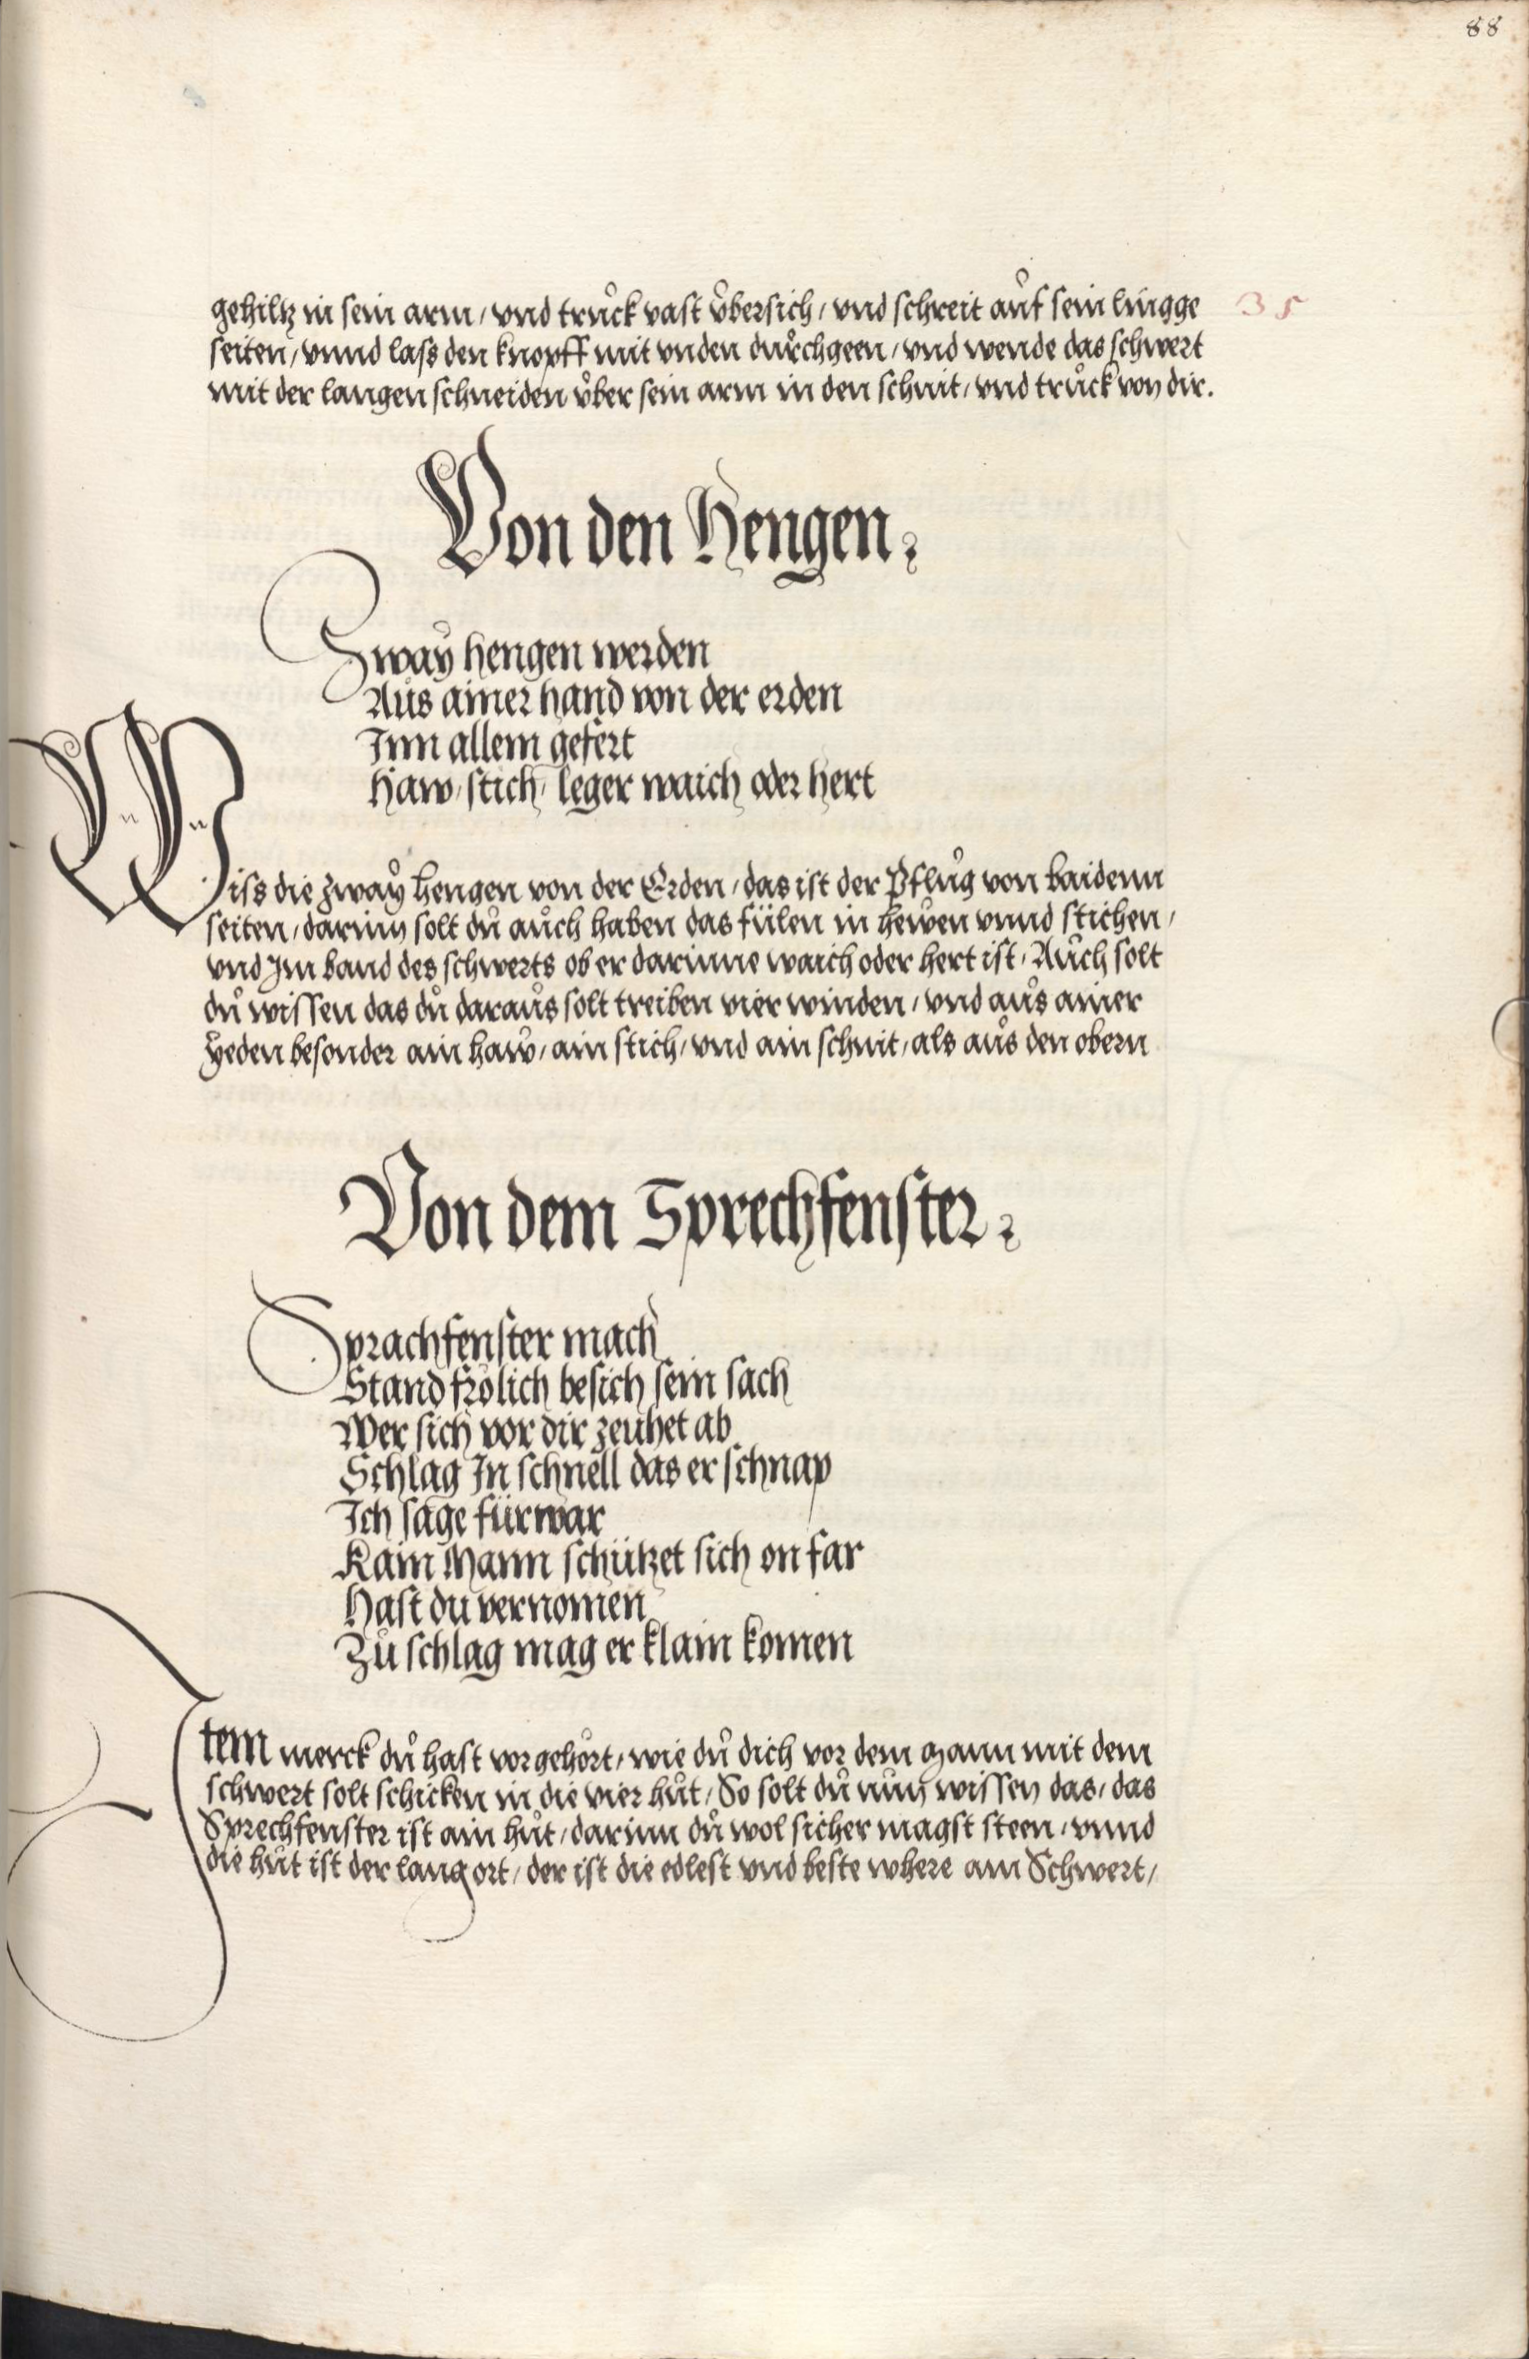 88
gehiltz in sein arm / vnd trůck vast v̊bersich / vnd schreit aůf sein lingge
35
seiten / vnnd lass den knopff mit vnden dům̊chgeen / vnd wende das schwert
mit der langen schneiden v̊ber sein arm in den schnit / vnd trůck von dir.
Von den Hengen
Zwaÿ hengen werden
Aůs ainer hand von der erden
Inn allem gefert
Haw / stich / leger waich oder hert
Wiss die zwaÿ hengen von der Erden / das ist der Pflůg von baidenn
seiten / darinn solt dů aůch haben das fülen in hewen vnnd stichen /
vnd Im band des schwerts ob er darinne waich oder hert ist / Aůch solt
dů wissen das dů daraůs solt treiben vier winden / vnd aůs ainer
ÿeden besonder ain haw / ain stich / vnd ain schnit / als aůs den obern
Von dem Sprechfenster
Sprachfenster mach
Stand frölich besich sein sach
Wer sich vor dir zeuhet ab
Schlag In schnell das er schnap
Ich sage fürwar
Kain Mann schützet sich on far
Hast du vernomen
Zů schlag mag er klain komen
Item merck dů hast vor gehört / wie dů dich vor dem mann mit dem
schwert solt schicken in die vier hůt / So solt dů nun wissen das / das
Sprechfenster ist ain hůt / darinn dů wol sicher magst steen / vnnd
die hůt ist der lang ort / der ist die edlest vnd beste where am Schwert /